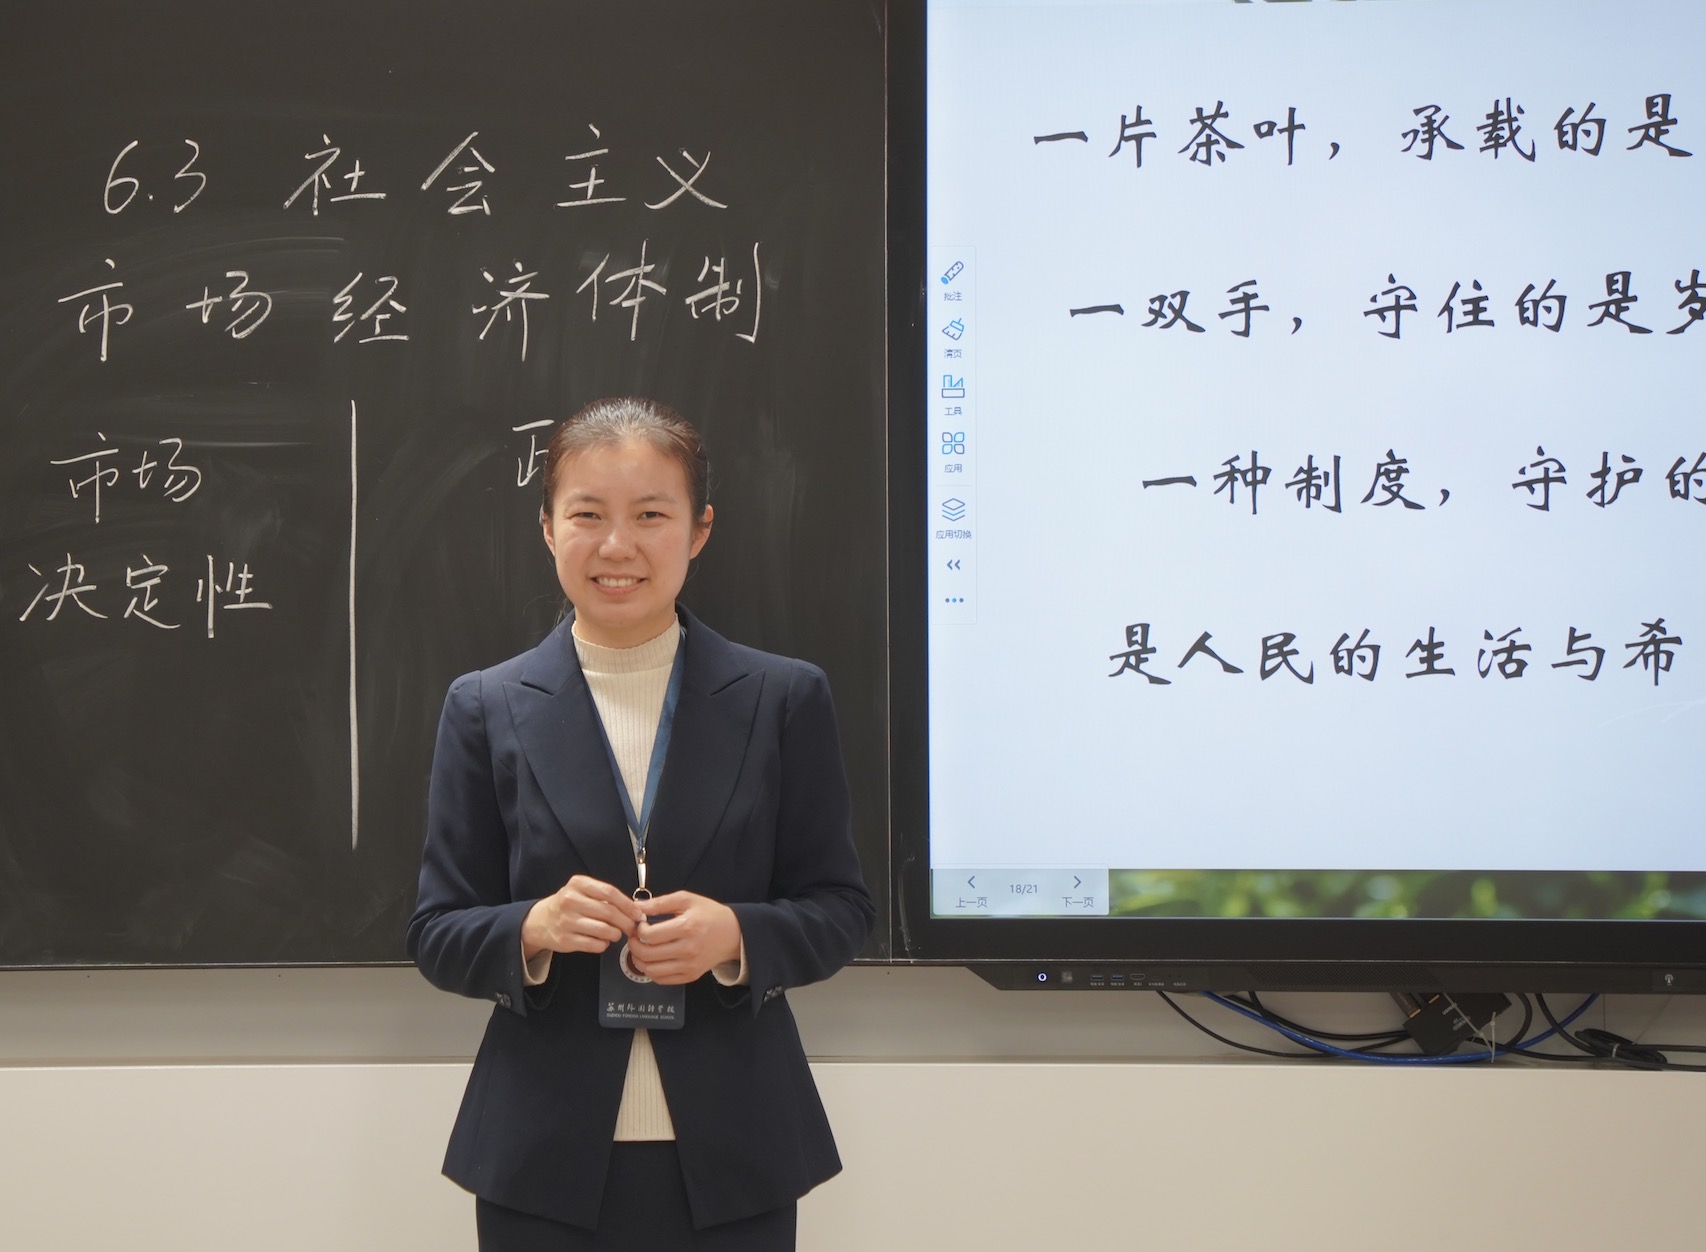 6.3 社会主义
市场经济体制
市场
决定性
一片茶叶，承载的是
一双手，守住的是岁
一种制度，守护的
是人民的生活与希
批注
清页
工具
应用
应用切换
上一页
18/21
下一页
苏州外国语学校
SUZHOU FOREIGN LANGUAGE SCHOOL